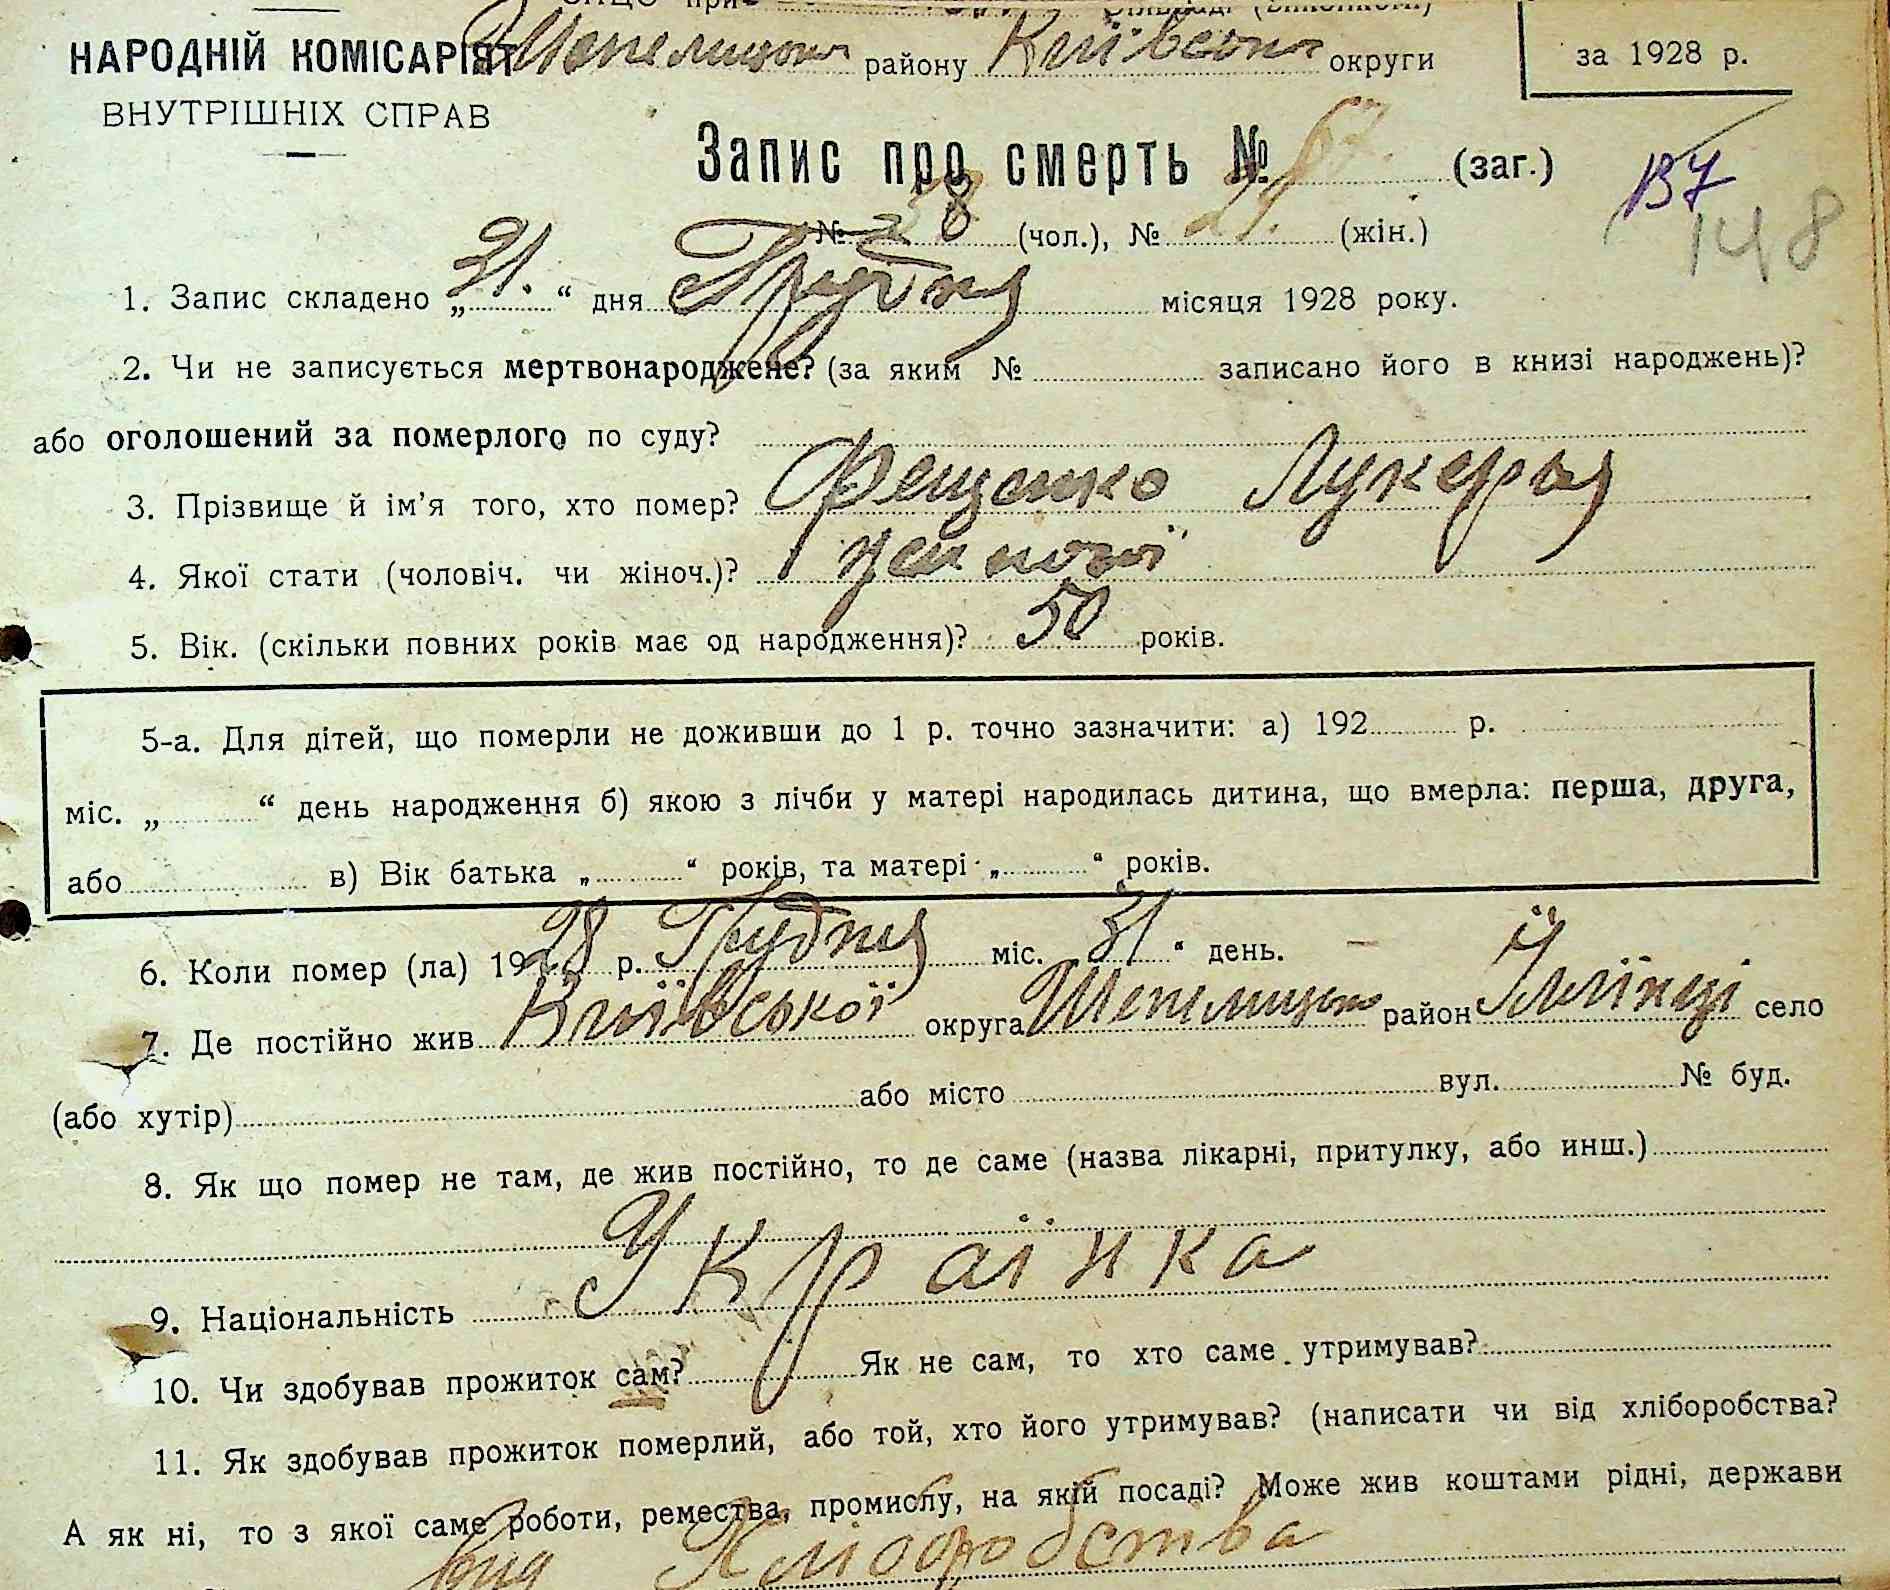 НАРОДНІЙ КОМІСАРІЯТ
ВНУТРІШНІХ СПРАВ
району Київської округи
за 1928 р.
Запис про смерть № 67. (заг.)
137
148
№ 38 (чол.), № 29. (жін.)
1. Запис складено „31.“ дня Грудня місяця 1928 року.
2. Чи не записується мертвонароджене? (за яким № записано його в книзі народжень)?
або оголошений за померлого по суду?
3. Прізвище й ім'я того, хто помер? Фещенко Лукерья
4. Якої стати (чоловіч. чи жіноч.)? жіночої
5. Вік. (скільки повних років має од народження)? 50 років.
5-а. Для дітей, що померли не доживши до 1 р. точно зазначити: а) 192 р.
міс. „ “ день народження б) якою з лічби у матері народилась дитина, що вмерла: перша, друга,
або в) Вік батька „ “ років, та матері „ “ років.
6. Коли помер (ла) 1928 р. Грудня міс. 31 “ день.
7. Де постійно жив Київської округа Шепелицьк район Іллінці село
(або хутір) або місто вул. № буд.
8. Як що помер не там, де жив постійно, то де саме (назва лікарні, притулку, або инш.)
9. Національність Українка
10. Чи здобував прожиток сам? Як не сам, то хто саме утримував?
11. Як здобував прожиток померлий, або той, хто його утримував? (написати чи від хліборобства?
А як ні, то з якої саме роботи, ремества, промислу, на якій посаді? Може жив коштами рідні, держави
від Хліборобства